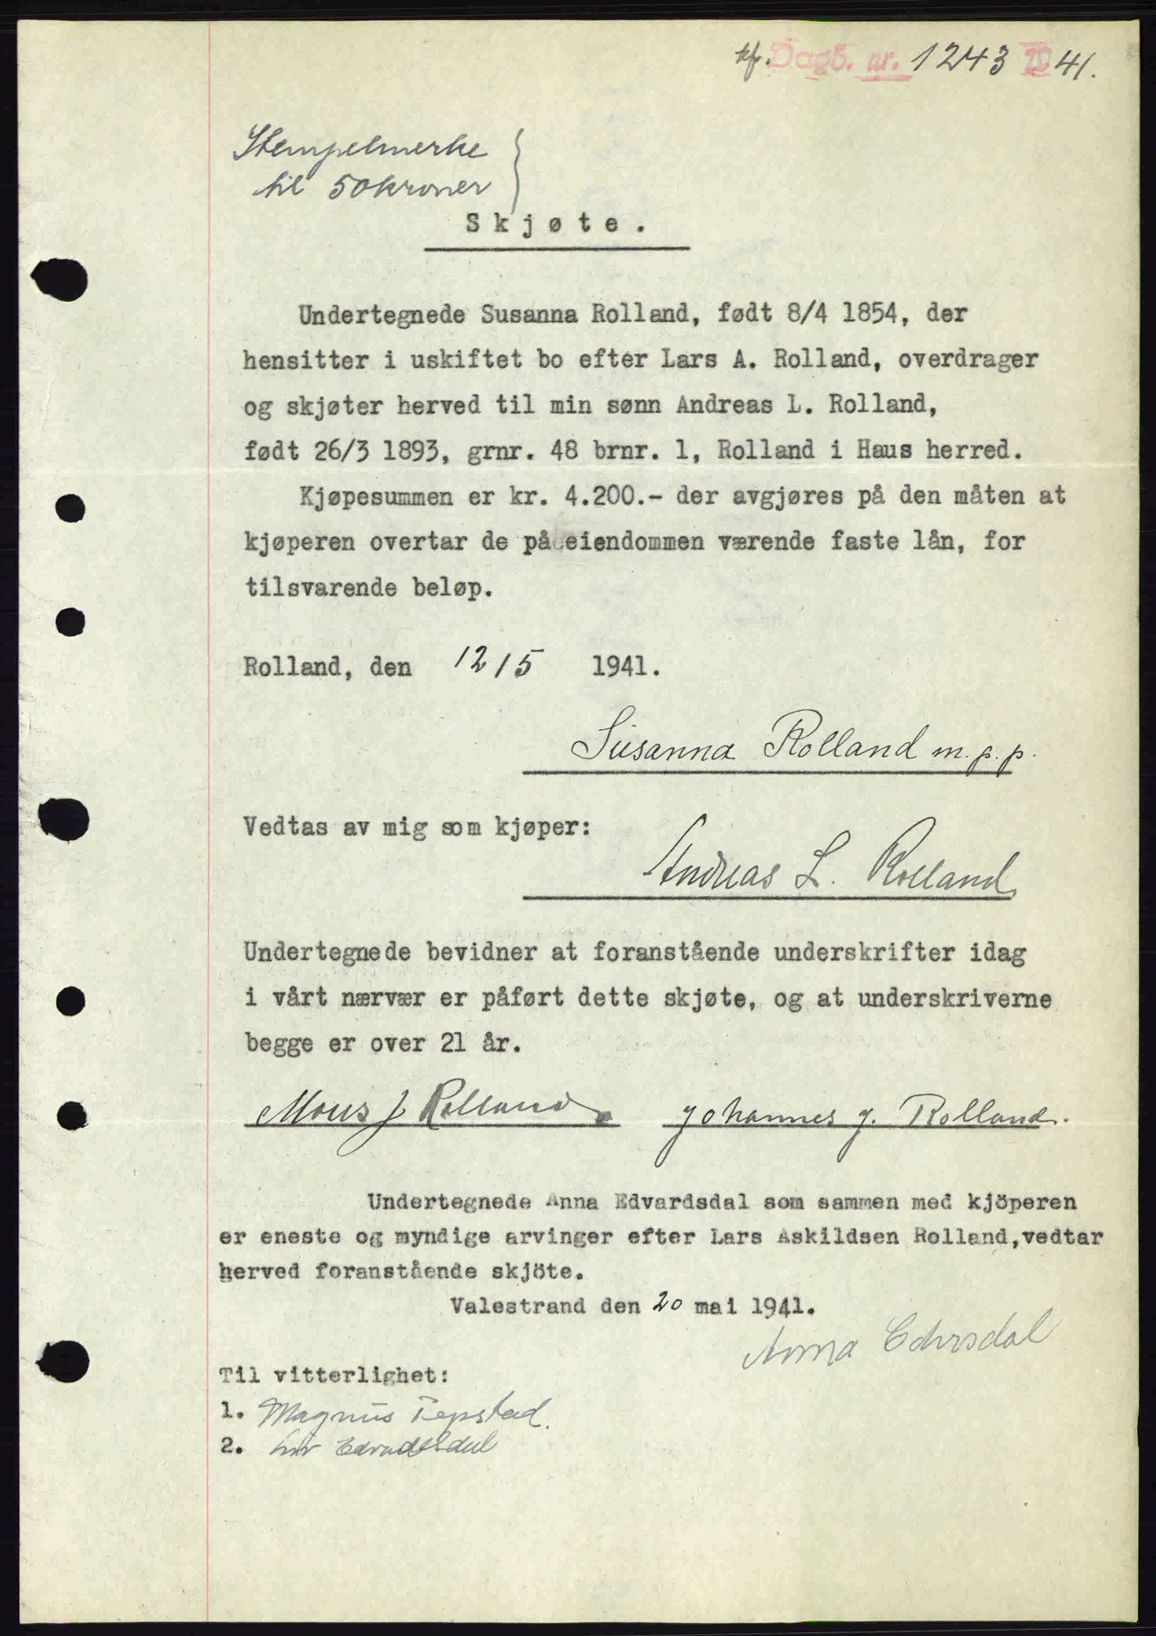 Dagb. nr. 1243 1941.
Stempelmerke
til 50 kroner
Skjøte.
Undertegnede Susanna Rolland, født 8/4 1854, der
hensitter i uskiftet bo efter Lars A. Rolland, overdrager
og skjøter herved til min sønn Andreas L. Rolland,
født 26/3 1893, grnr. 48 brnr. 1, Rolland i Haus herred.
Kjøpesummen er kr. 4.200.- der avgjøres på den måten at
kjøperen overtar de på eiendommen værende faste lån, for
tilsvarende beløp.
Rolland, den 12/5 1941.
Susanna Rolland m.p.p.
Vedtas av mig som kjøper:
Andreas L. Rolland
Undertegnede bevidner at foranstående underskrifter idag
i vårt nærvær er påført dette skjøte, og at underskriverne
begge er over 21 år.
Mons J Rolland Johannes J. Rolland.
Undertegnede Anna Edvardsdal som sammen med kjöperen
er eneste og myndige arvinger efter Lars Askildsen Rolland,vedtar
herved foranstående skjöte.
Valestrand den 20 mai 1941.
Anna
Til vitterlighet:
1. Magnus
2.